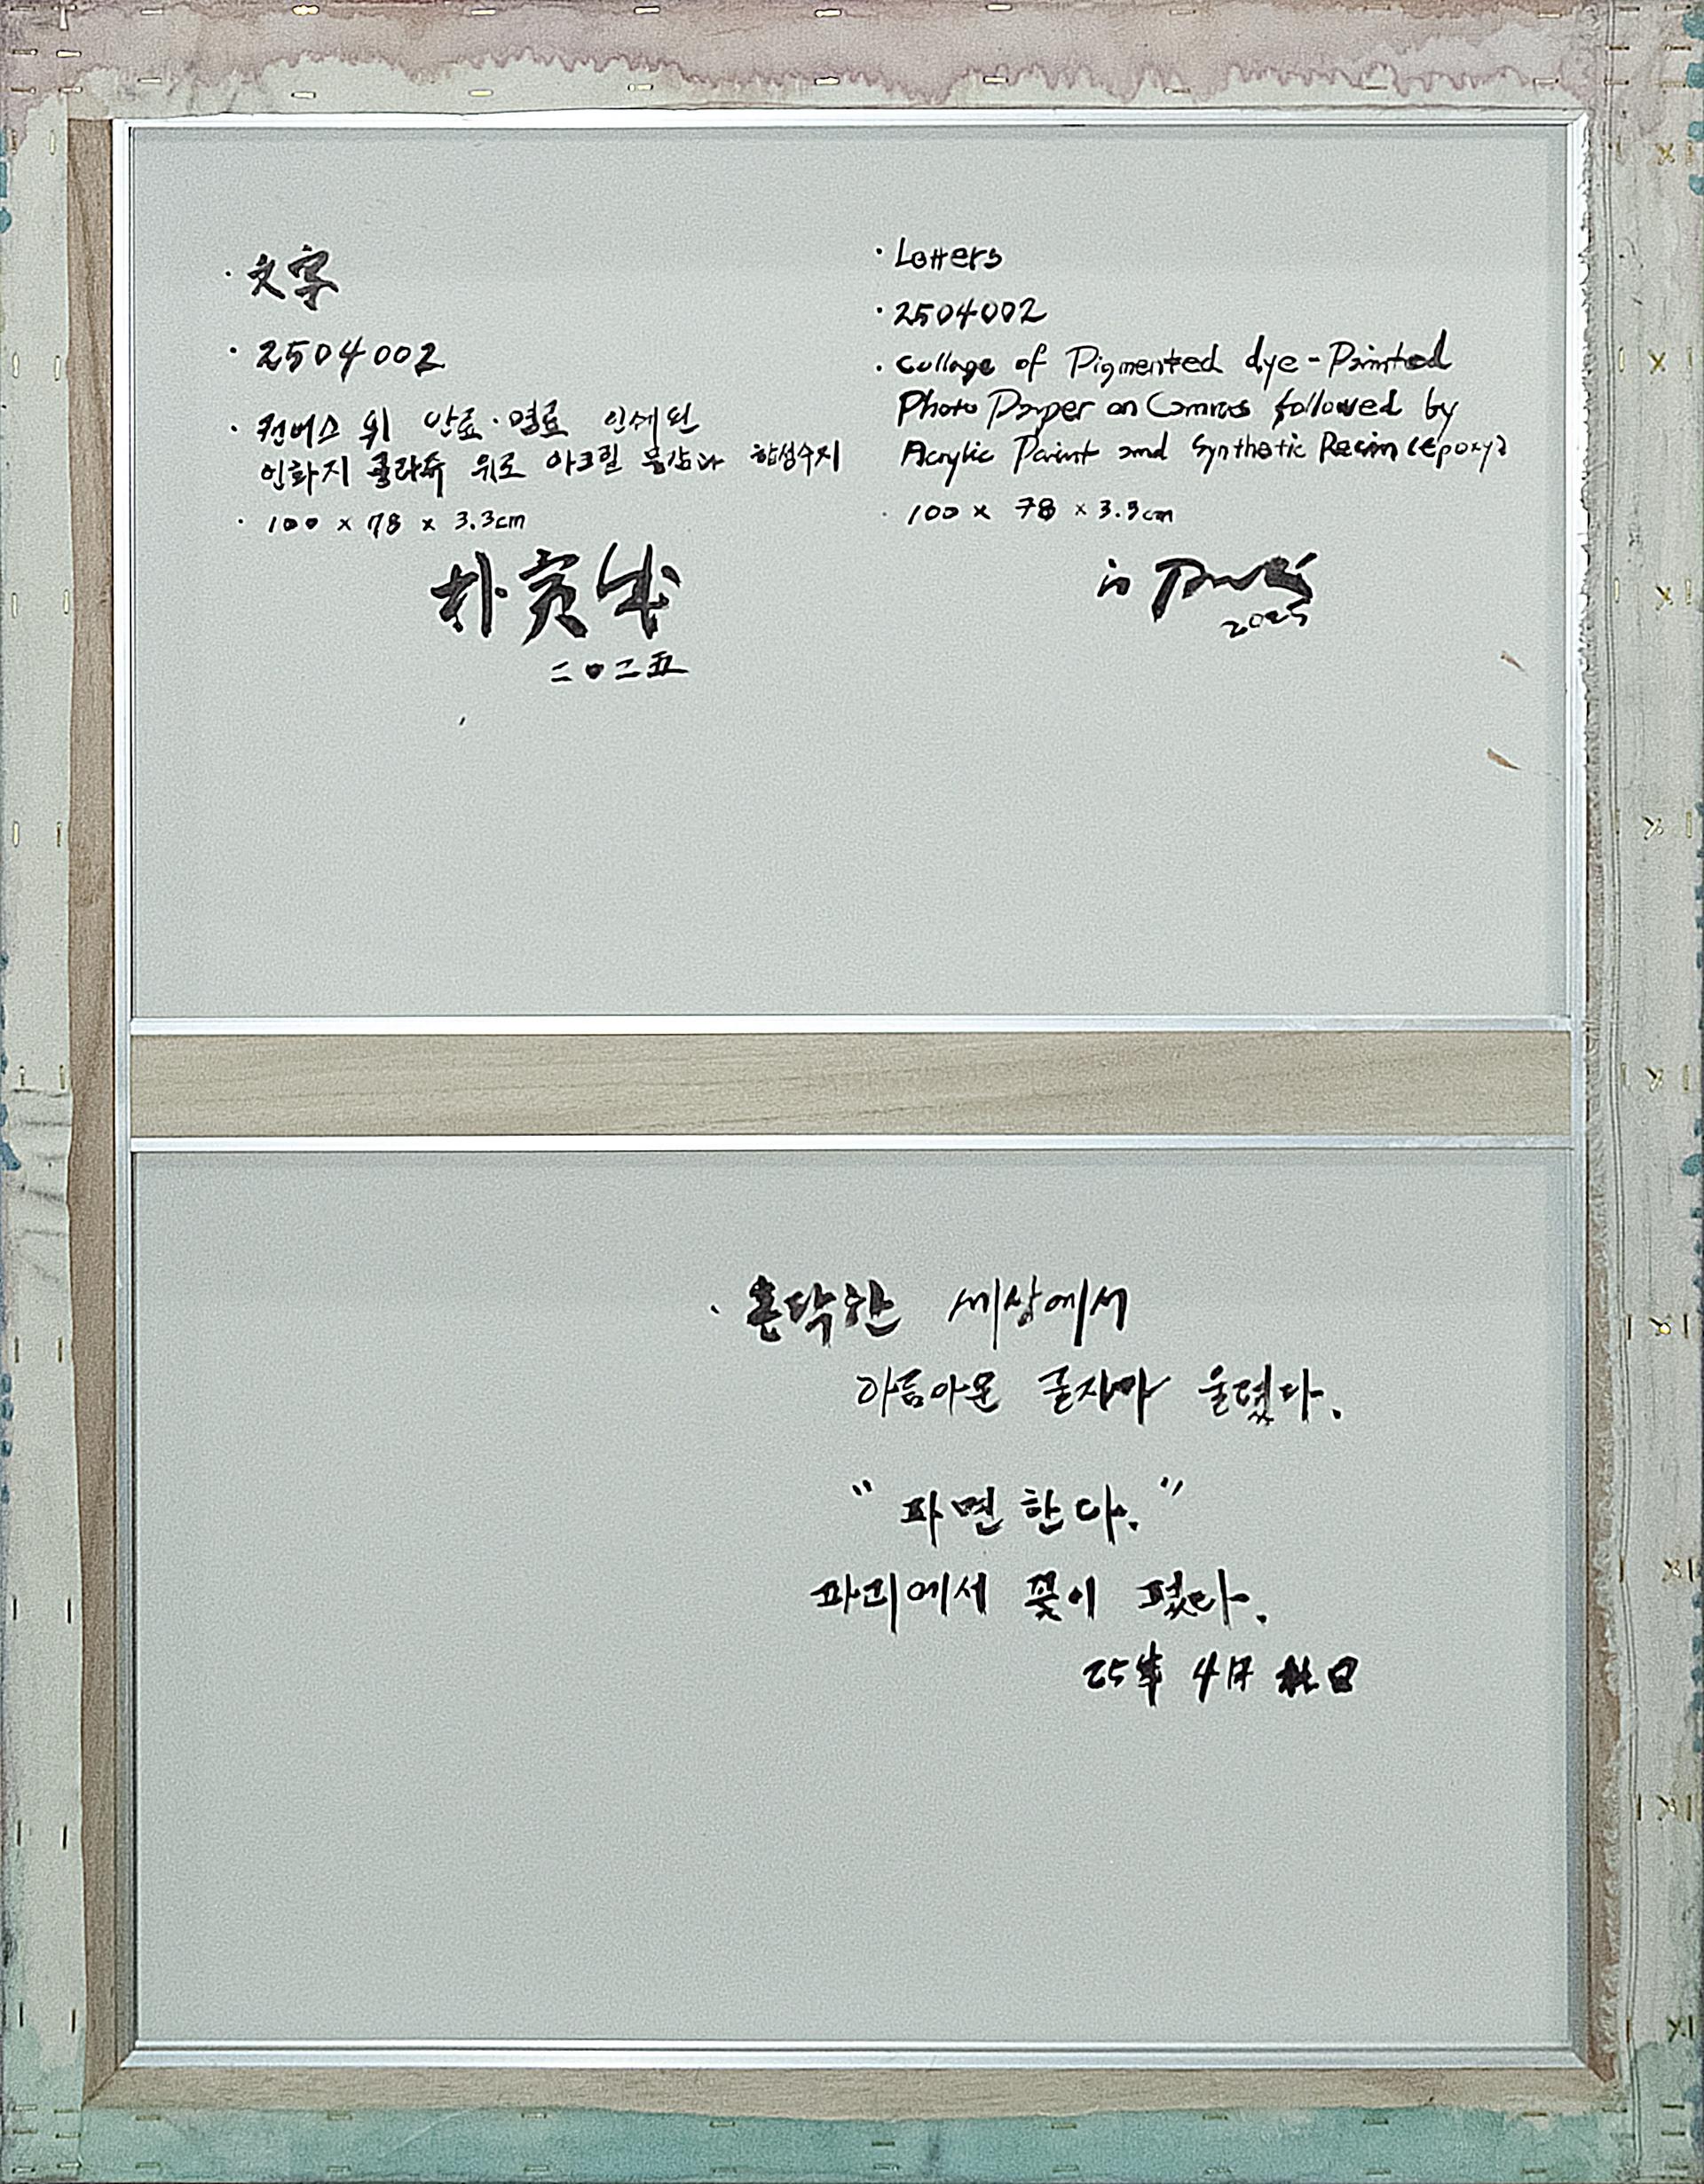 · 文字
· 2504002
· 컨버스 위 안료·염료 인쇄된
인화지 콜라쥬 위로 아크릴 물감과 합성수지
· 100 x 78 x 3.3cm
朴
二〇二五
· Letters
· 2504002
· Collage of Pigmented dye-Painted
Photo Paper on Canvas followed by
Acrylic Paint and Synthetic Resin (epoxy)
· 100 x 78 x 3.3cm
in Park
2025
· 혼탁한 세상에서
아름아운 글자가 울렸다.
"파면한다."
파리에서 꽃이 폈다.
25年 4月 日